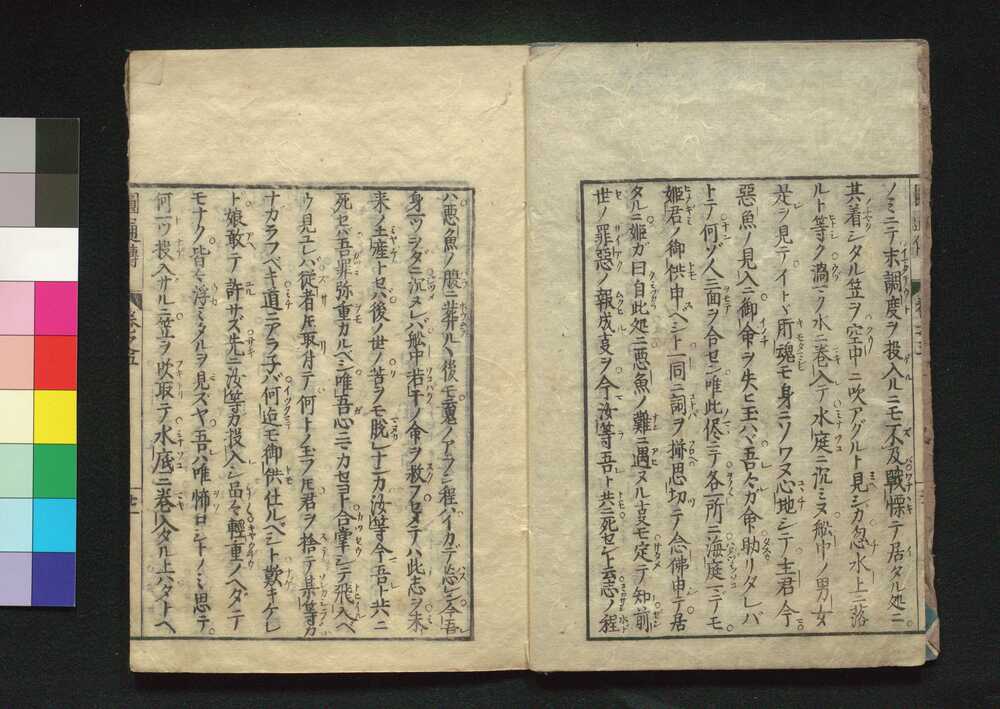 ノミニテ末調度ヲ投入ルニモ不及戰慄テ居タル処ニ
其着シタル笠ヲ空中ニ吹アグルト見シカ忽水上ニ落
ルト等ク渦マク水ニ巻入テ水底ニ沉ミヌ舩中ノ男女
是ヲ見テイトヾ肝魂モ身ニソワヌ心地シテ主君今
惡魚ノ見入ニ御命ヲ失ヒ玉ハヾ吾々カ命助リタレバ
トテ何ゾ人ニ面ヲ合セン唯此侭ニテ各一所ニ海底ニテモ
姫君ノ御供申ベシト一同ニ詞ヲ揃思切ツテ念佛申テ居
タルニ姫ガ曰自此処ニ悪魚ノ難ニ遇ヌル支モ定テ知前
世ノ罪惡ノ報成支ヲ今汝等吾ト共ニ死セント云志ノ程
ハ悪魚ノ腹ニ葬ルヽ後モ魂ノアラン程ハイカデ忘レン今吾
身一ツヲタニ沉ヌレバ舩中若干ノ命ヲ救フセメテハ此志ヲ未
来ノ土産トセバ後ノ世ノ苦ヲモ脱ナンカ汝等今吾ト共ニ
死セバ吾罪弥重カルベシ唯吾心ニマカセヨト合掌シテ飛入ベ
ウ見ユレバ従者圧取付テ何トノ玉フ圧君ヲ捨テ某等カ
ナガラフベキ道ニアラ子バ何迄モ御供仕ルベシト歎キケレ
ド娘敢テ許サズ先ニ汝等カ投入シ品々輕重ノヘダテ
モナク皆々浮ミタルヲ見ズヤ吾ハ唯怖ロシトノミ思テ
何一ツ投入ザルニ笠ヲ吹取テ水底ニ巻入タル上ハタトヘ
圓通傳 巻之五